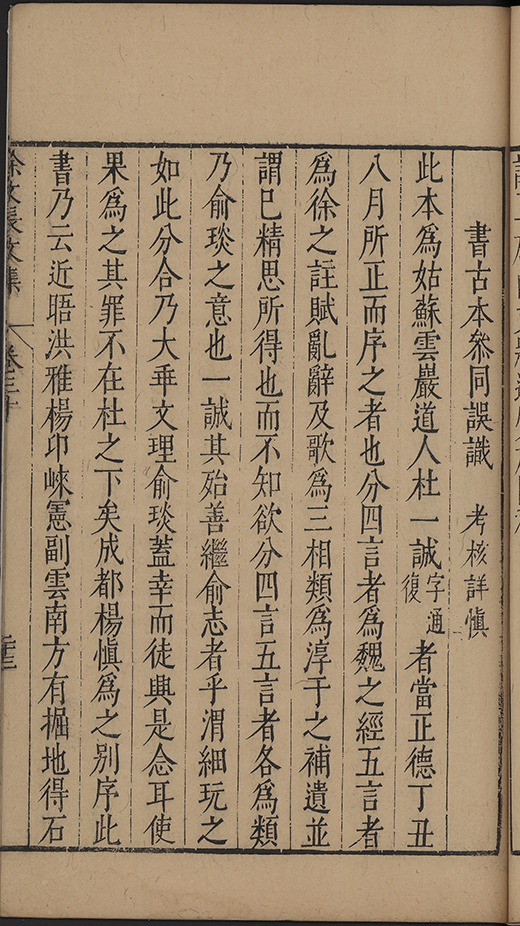 書古本參同誤識 考核詳慎
此本為姑蘇雲巖道人杜一誠字通復者當正德丁丑
八月所正而序之者也分四言者為魏之經五言者
為徐之註賦亂辭及歌為三相類為淳于之補遺並
謂已精思所得也而不知欲分四言五言者各為類
乃俞琰之意也一誠其殆善繼俞志者乎渭細玩之
如此分合乃大乖文理俞琰蓋幸而徒興是念耳使
果為之其罪不在杜之下矣成都楊慎為之別序此
書乃云近晤洪雅楊卬崍憲副雲南方有掘地得石
徐文長文集 卷三十